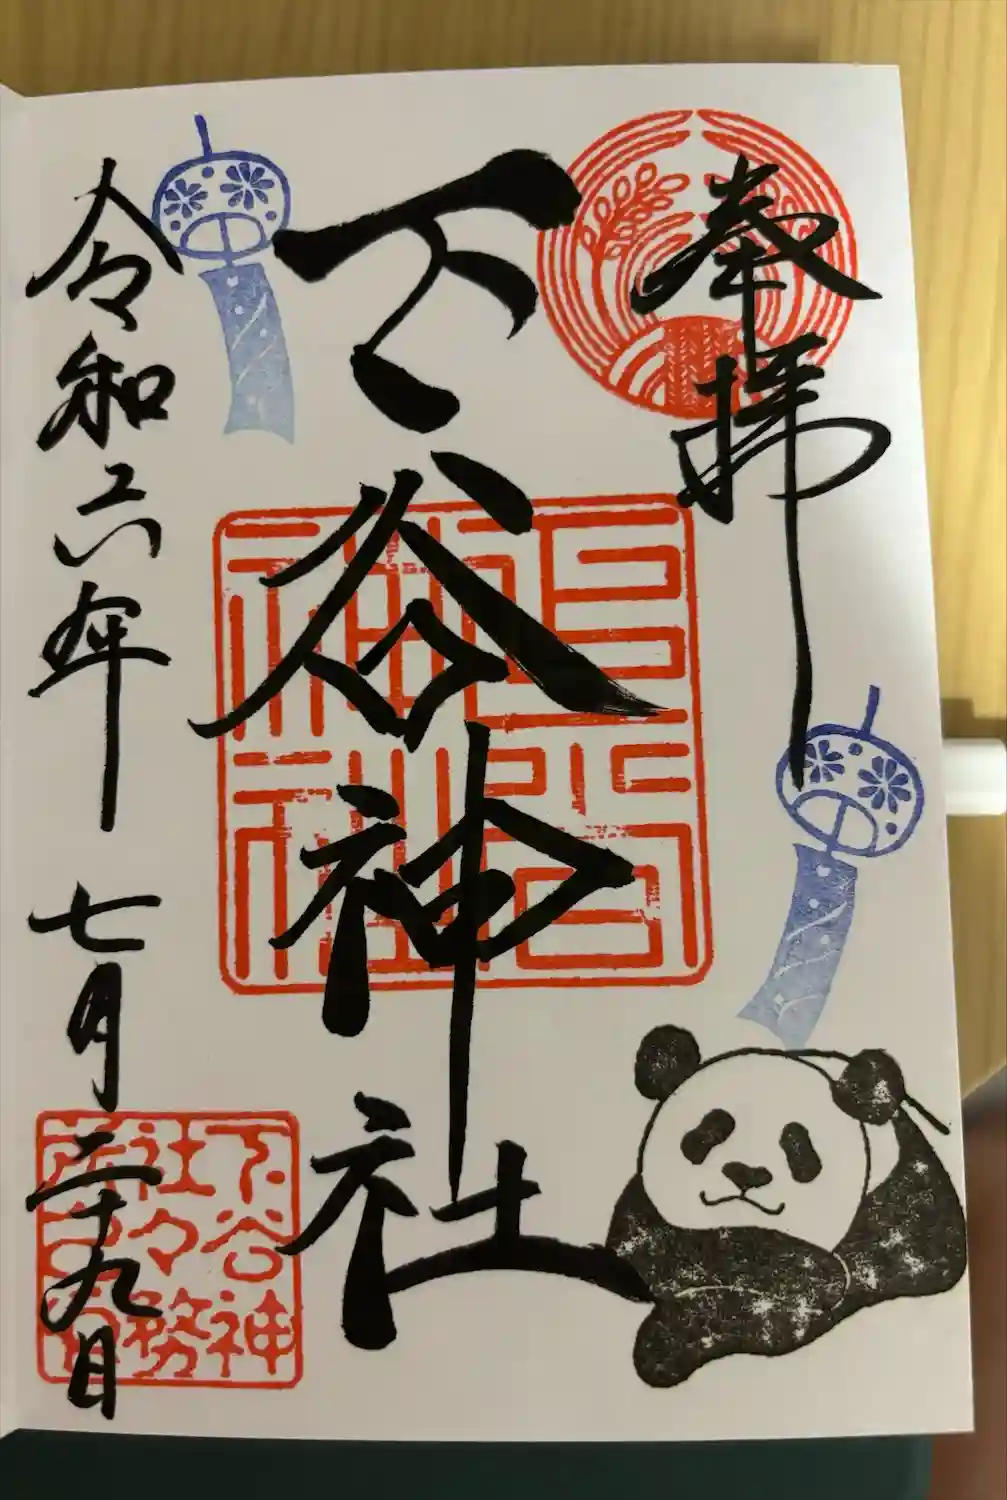 奉拝
下谷神社
令和六年 七月二十九日
下谷神
社々務